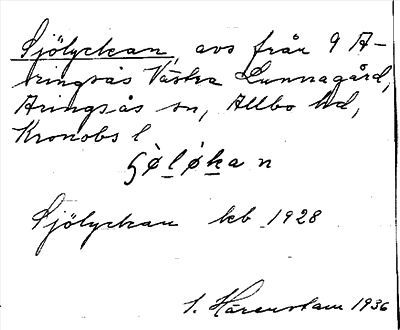 Sjölyckan, avs från 9 A-
ringsås Västra Lunnagård,
Aringsås sn, Allbo hd,
Kronobs l
ʃø̀lø̀kan
Sjölyckan kb 1928
S. Härenstam 1936